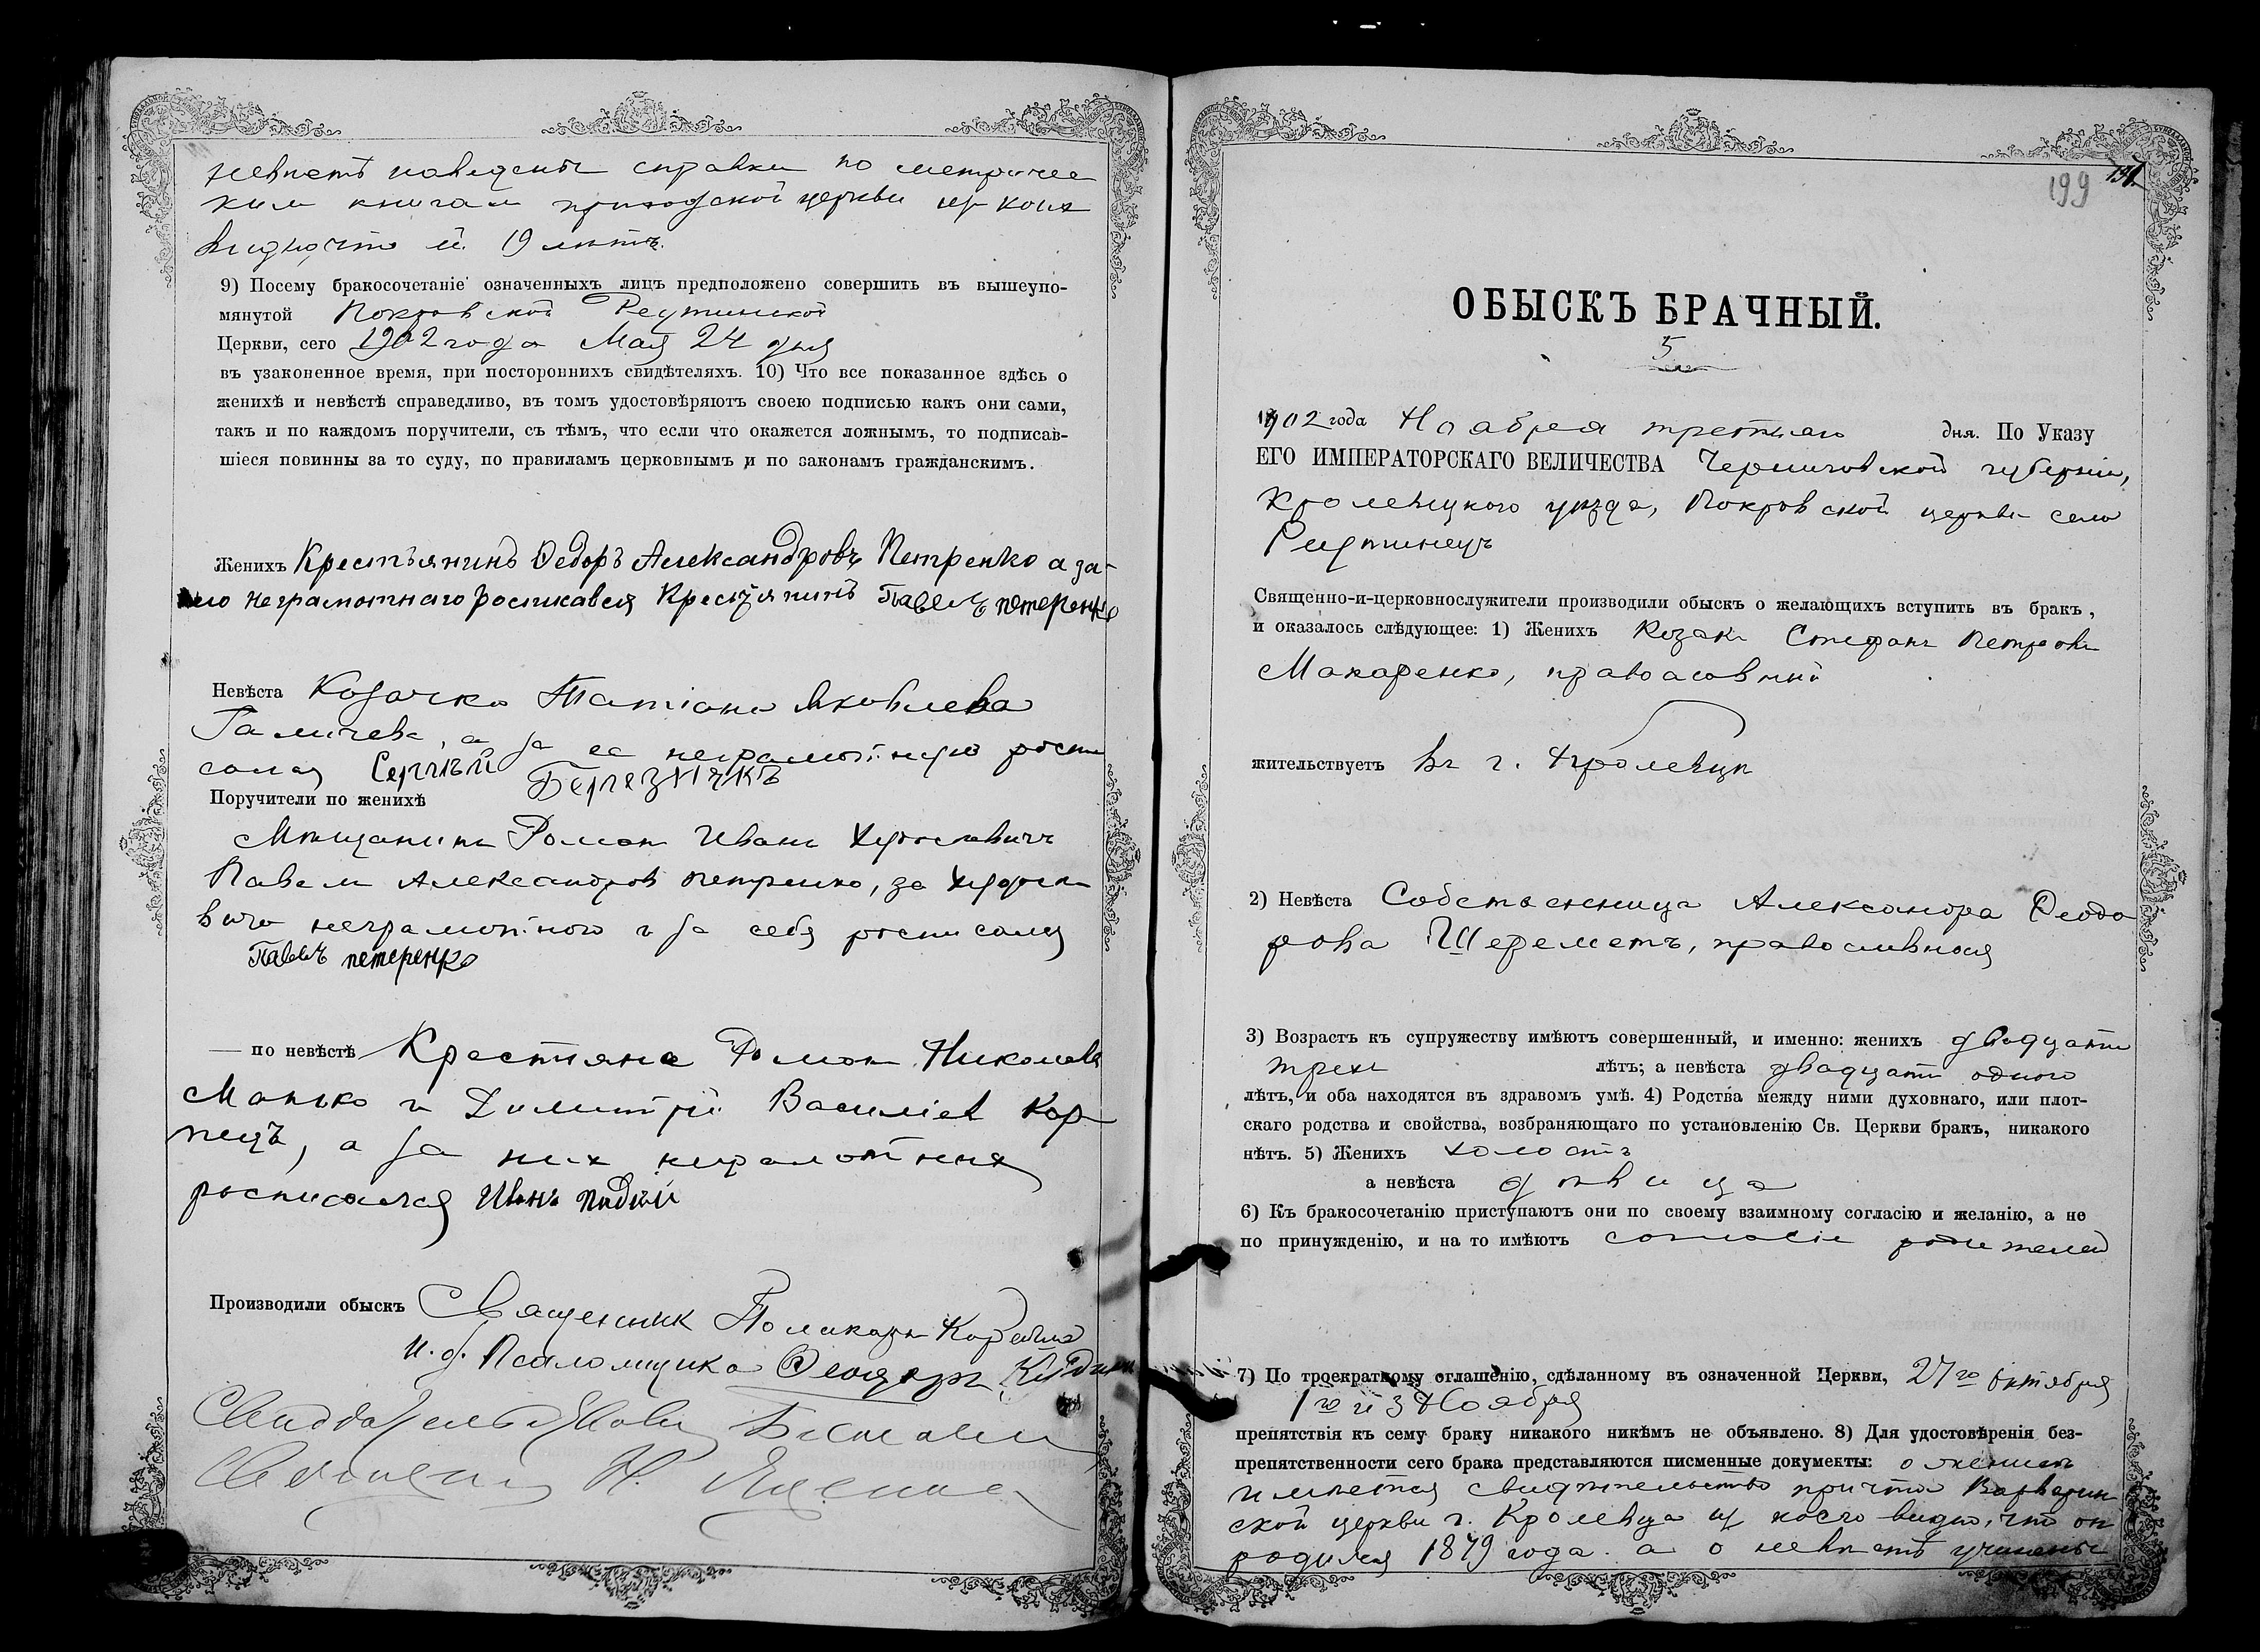 невѣстѣ наведены справки по метричес
ким книгам приходской церкви из коих
видно, что ей 19 лѣтъ.
9) Посему бракосочетаніе означенныхъ лицъ предположено совершить въ вышеупо-
мянутой Покровской Реутинской
Церкви, сего 1902 года Мая 24 дня
въ узаконенное время, при постороннихъ свидѣтеляхъ. 10) Что все показанное здѣсь о
женихѣ и невѣстѣ справедливо, въ томъ удостовѣряютъ своею подписью какъ они сами,
такъ и по каждомъ поручители, съ тѣмъ, что если что окажется ложнымъ, то подписав-
шіеся повинны за то суду, по правиламъ церковнымъ и по законамъ гражданскимъ.
Женихъ Крестьянинъ Ѳедоръ Александровъ Петренко а за
его неграмотнаго росписався Крестьянинъ Павелъ петеренко
Невѣста Козачка Татіана Яковлева
Галичева, а за ее неграмотную роспи
сался Сергѣй Березнякъ
Поручители по женихѣ
Мѣщанинъ Роман Иванъ
Павелъ Александров Петренко, за
вича неграмотного и за себя росписался
Павелъ петеренко
— по невѣстѣ Крестяне Роман Николаев
Манько и Димитрій Василіев Кор-
пецъ, а за них неграмотных
росписался Иванъ
Производили обыскъ Священник Поликарп
и. д. Псаломщика Ѳеодоръ
199
ОБЫСКЪ БРАЧНЫЙ.
5
1902 года Ноября третьяго дня. По Указу
ЕГО ИМПЕРАТОРСКАГО ВЕЛИЧЕСТВА Черниговской губерніи,
Кролевецкого уѣзда, Покровской церкви села
Реутинецъ
Священно-и-церковнослужители производили обыскъ о желающихъ вступить въ бракъ,
и оказалось слѣдующее: 1) Женихъ Козакъ Стефанъ Петровъ
Макаренко, православный
жительствуетъ въ г. Кролевцѣ
2) Невѣста Собственница Александра Ѳеодо
рова Шереметъ, православная
3) Возрастъ къ супружеству имѣютъ совершенный, и именно: женихъ двадцати
трехъ лѣтъ; а невѣста двадцати одного
лѣтъ, и оба находятся въ здравомъ умѣ. 4) Родства между ними духовнаго, или плот-
скаго родства и свойства, возбраняющаго по установленію Св. Церкви бракъ, никакого
нѣтъ. 5) Женихъ холостъ
а невѣста дѣвица
6) Къ бракосочетанію приступаютъ они по своему взаимному согласію и желанію, а не
по принужденію, и на то имѣютъ согласіе родителей
7) По троекратному оглашенію, сдѣланному въ означенной Церкви, 27го октября
1го и 3 Ноября
препятствія къ сему браку никакого никѣмъ не объявлено. 8) Для удостовѣренія без-
препятственности сего брака представляются писменные документы: о женихѣ
имѣется свидѣтельство причта Варварин
ской церкви г. Кролевца из коего видно, что он
родился 1879 года. а о невѣстѣ учинены